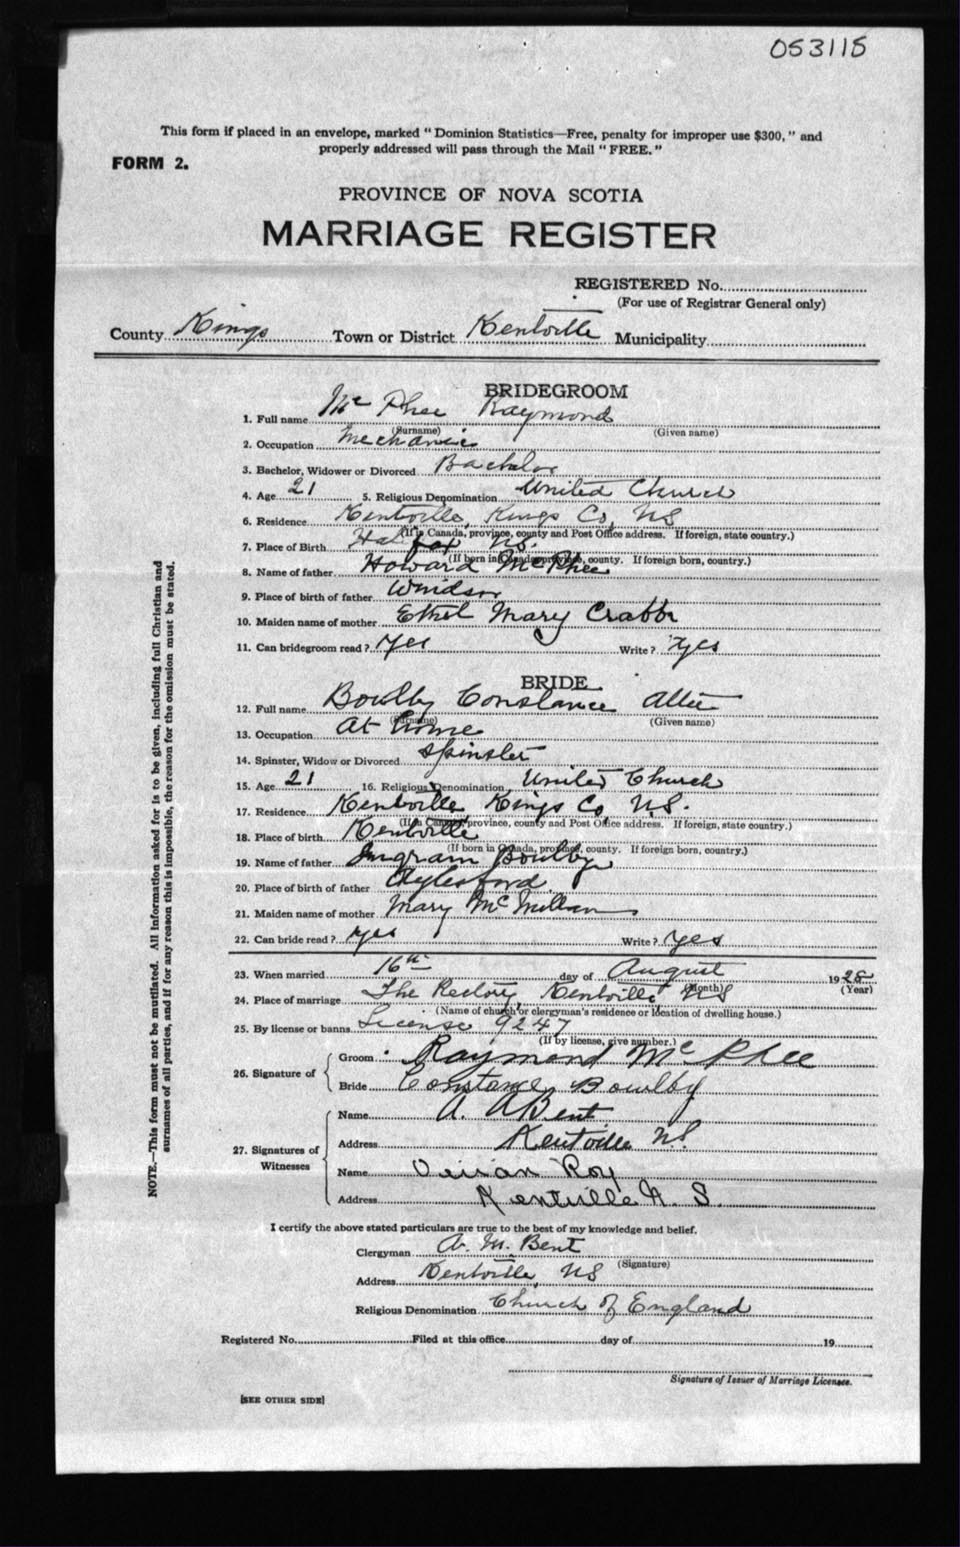 053115
This form if placed in an envelope, marked "Dominion Statistics—Free, penalty for improper use $300," and
properly addressed will pass through the Mail "FREE."
FORM 2.
PROVINCE OF NOVA SCOTIA
MARRIAGE REGISTER
REGISTERED No.
(For use of Registrar General only)
County Kings Town or District Kentville Municipality
BRIDEGROOM
1. Full name McPhee Raymond
(Surname) (Given name)
2. Occupation Mechanic
3. Bachelor, Widower or Divorced Bachelor
4. Age 21 5. Religious Denomination United Church
6. Residence Kentville, Kings Co, NS
(If in Canada, province, county and Post Office address. If foreign, state country.)
7. Place of Birth Halifax NS.
(If born in Canada, province, county. If foreign born, country.)
8. Name of father Howard McPhee
9. Place of birth of father Windsor
10. Maiden name of mother Ethel Mary Crabbe
11. Can bridegroom read? Yes Write? Yes
BRIDE
12. Full name Boulby Constance
(Surname) (Given name)
13. Occupation At Home
14. Spinster, Widow or Divorced Spinster
15. Age 21 16. Religious Denomination United Church
17. Residence Kentville Kings Co, N.S.
(If in Canada, province, county and Post Office address. If foreign, state country.)
18. Place of birth Kentville
(If born in Canada, province, county. If foreign born, country.)
19. Name of father Ingram Boulby
20. Place of birth of father Aylesford
21. Maiden name of mother Mary McMillan
22. Can bride read? Yes Write? Yes
23. When married 16th day of August 1928
(Month) (Year)
24. Place of marriage The Rectory, Kentville NS
(Name of church or clergyman's residence or location of dwelling house.)
25. By license or banns License 9247
(If by license, give number.)
26. Signature of
Groom Raymond McPhee
Bride Constance Bowlby
27. Signatures of Witnesses
Name A. A Bent
Address Kentville NS
Name Vivian Roy
Address Kentville N. S.
I certify the above stated particulars are true to the best of my knowledge and belief.
Clergyman A. M. Bent
(Signature)
Address Kentville, NS
Religious Denomination Church of England
Registered No. Filed at this office day of 19
Signature of Issuer of Marriage Licenses.
[SEE OTHER SIDE]
NOTE.—This form must not be mutilated. All information asked for is to be given, including full Christian and
surnames of all parties, and if for any reason this is impossible, the reason for the omission must be stated.